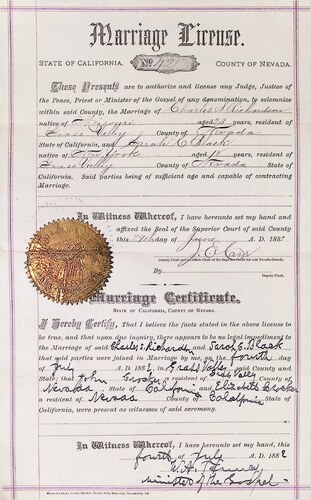 Marriage License.
STATE OF CALIFORNIA, No. COUNTY OF NEVADA.
These Presents are to authorize and license any Judge, Justice of
the Peace, Priest or Minister of the Gospel of any denomination, to solemnize
within said County, the Marriage of Charles Richardson
native of Missouri aged 22 years, resident of
Grass Valley County of Nevada
State of California, and Sarah E Black
native of New York aged 18 years, resident of
Grass Valley County of Nevada State of
California. Said parties being of sufficient age and capable of contracting
Marriage.
In Witness Whereof, I have hereunto set my hand and
affixed the Seal of the Superior Court of said County
this day of A. D. 188
County Clerk and Clerk of the Superior Court
By
Deputy Clerk.
Marriage Certificate.
STATE OF CALIFORNIA, COUNTY OF NEVADA.
I Hereby Certify, That I believe the facts stated in the above license to
be true, and that upon due inquiry, there appears to be no legal impediment to
the Marriage of said Charles Richardson and Sarah E. Black
that said parties were joined in Marriage by me, on the fourth day
of July A. D. 188 in Grass Valley
State; that John Brooker of Grass Valley
Nevada State of California and Elizabeth Brooker
a resident of Nevada of California State of
California, were present as witnesses of said ceremony.
In Witness Whereof, I have hereunto set my hand, this
fourth of July A. D. 188
Minister of the Gospel